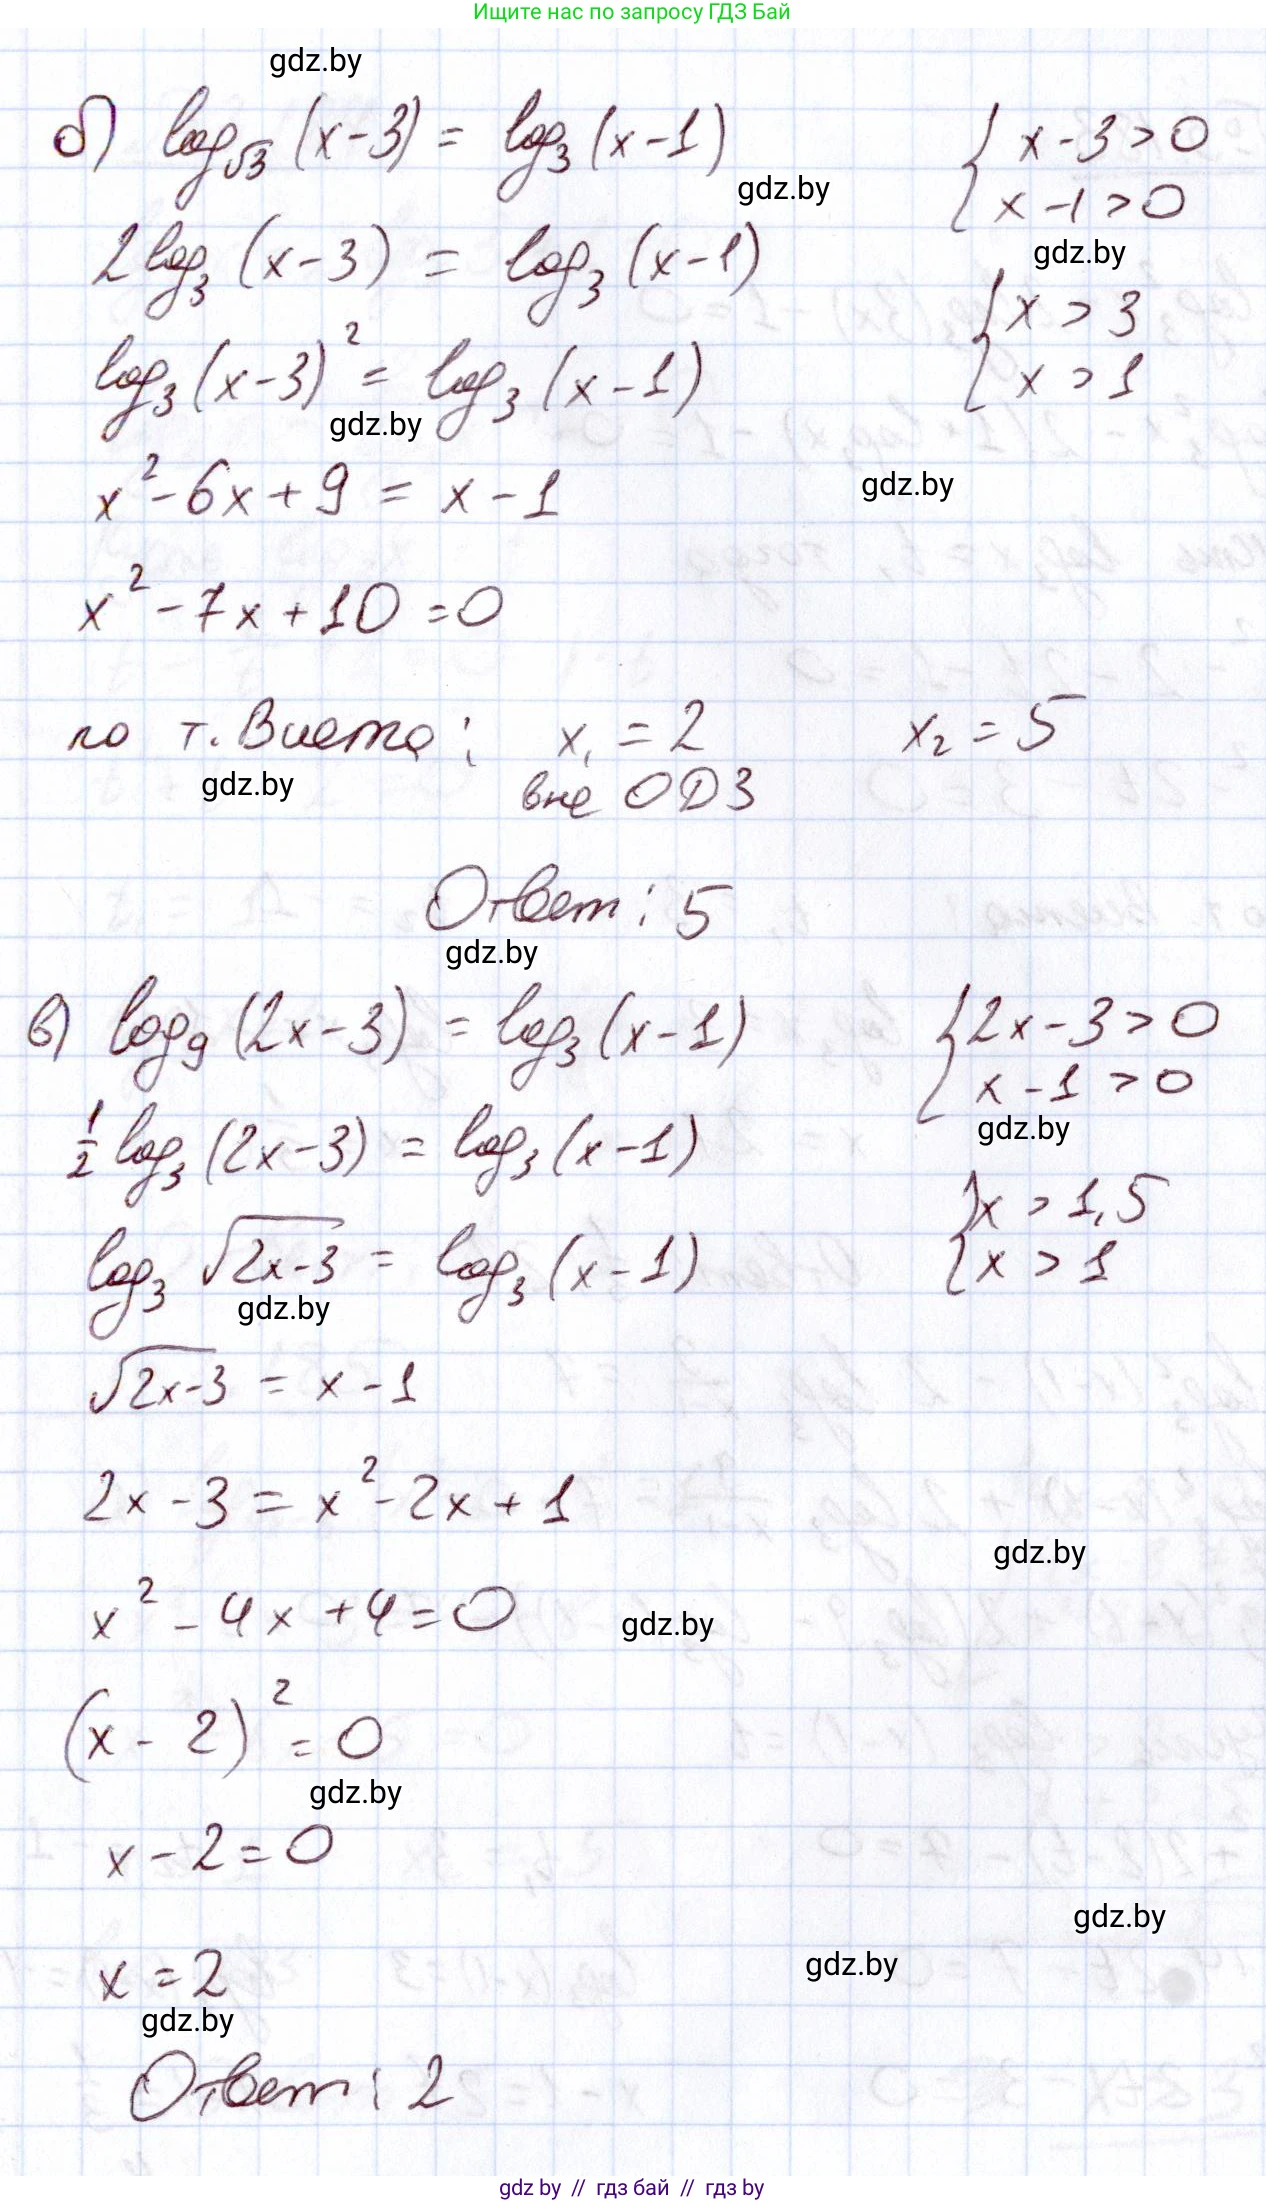 Ищите нас по запросу ГДЗ Бай
gdz.by
б) log_√3 (x-3) = log_3 (x-1)
{ x-3>0
gdz.by
x-1>0
2log_3 (x-3) = log_3 (x-1)
gdz.by
{ x > 3
log_3 (x-3)² = log_3 (x-1)
x > 1
gdz.by
x²-6x+9 = x-1
gdz.by
x²-7x+10=0
по т. Виета: x₁ = 2 x₂ = 5
gdz.by
вне ОДЗ
Ответ: 5
gdz.by
в) log_9 (2x-3) = log_3 (x-1)
{ 2x-3>0
x-1>0
gdz.by
½ log_3 (2x-3) = log_3 (x-1)
{ x > 1,5
log_3 √(2x-3) = log_3 (x-1)
x > 1
gdz.by
√(2x-3) = x-1
2x-3 = x²-2x+1
gdz.by
x²-4x+4=0
gdz.by
(x-2)²=0
gdz.by
x-2=0
gdz.by
x=2
gdz.by
gdz.by
Ответ: 2
gdz by // гдз бай // гдз by